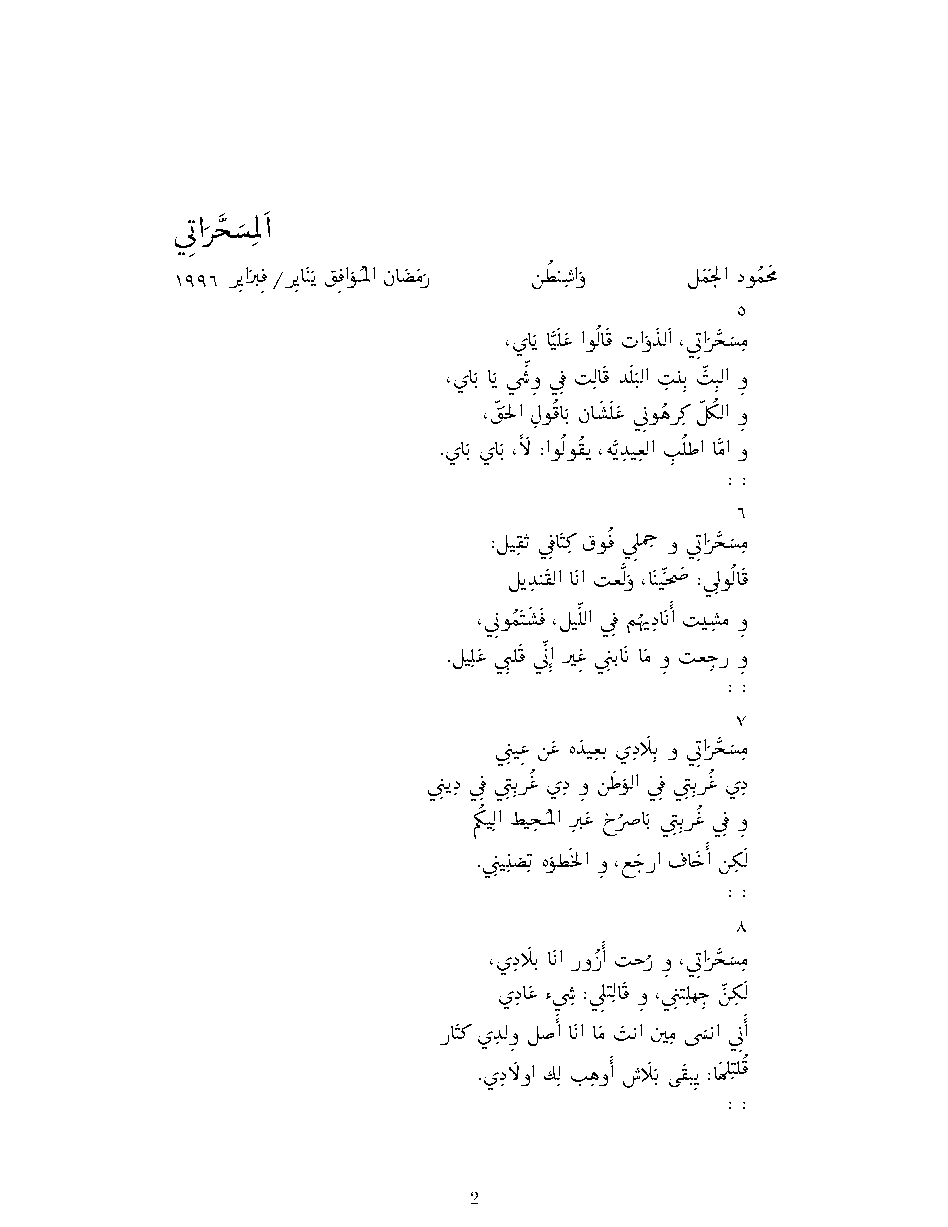 اَلمِسَحَّرَاتِي
مَحمُود الجَمَل وَاشِنطُن رَمَضَان المُوَافِق يَنَايِر/ فِبرَايِر ١٩٩٦
٥
مِسَحَّرَاتِي، اَلذَوَات قَالُوا عَلَيَّا يَاي،
وِ البِتّ بِنتِ البَلَد قَالِت فِي وِشِّي يَا بَاي،
وِ الكُلّ كِرهُونِي عَلَشَان بَاقُولِ الحَقّ،
و امَّا اطلُبِ العِيدِيَّه، يقُولُوا: لَأ، بَاي بَاي.
: :
٦
مِسَحَّرَاتِي و حِملِي فُوق كِتَافِي ثقِيل:
قَالُولِي: صَحِّينَا، وَلَّعت انَا القَندِيل
وِ مشِيت أَنَادِيهُم فِي اللِّيل، فَشَتَمُونِي،
وِ رجِعت وِ مَا نَابنِي غِير إِنِّي قَلبِي عَلِيل.
: :
٧
مِسَحَّرَاتِي و بِلَادِي بعِيدَه عَن عِينِي
دِي غُربِتِي فِي الوَطَن وِ دِي غُربِتِي فِي دِينِي
وِ فِي غُربِتِي بَاصرُخ عَبرِ المُحِيط الِيكُم
لَكِن أَخَاف ارجَع، وِ الخَطوَه تِضنِينِي.
: :
٨
مِسَحَّرَاتِي، وِ رُحت أَزُور انَا بلَادِي،
لَكِنّ جِهلِتنِي، وِ قَالِتلِي: شِيء عَادِي
أَنِي انسَى مِين انتَ مَا انَا أَصل وِلدِي كتَار
قُلتِلهَا: يِبقَى بَلَاش أَوهِب لِك اولَادِي.
: :
2